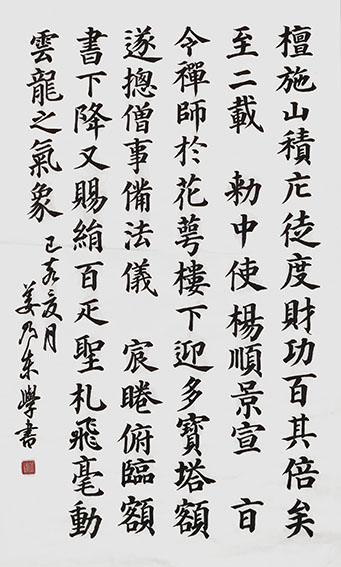 檀施山積庀徒度財功百其倍矣
至二載 勅中使楊順景宣 㫖
令禪師於花萼樓下迎多寶塔額
遂摠僧事備法儀 宸睠俯臨額
書下降又賜絹百疋聖札飛毫動
雲龍之氣象
己亥夏月
姜乃來學書